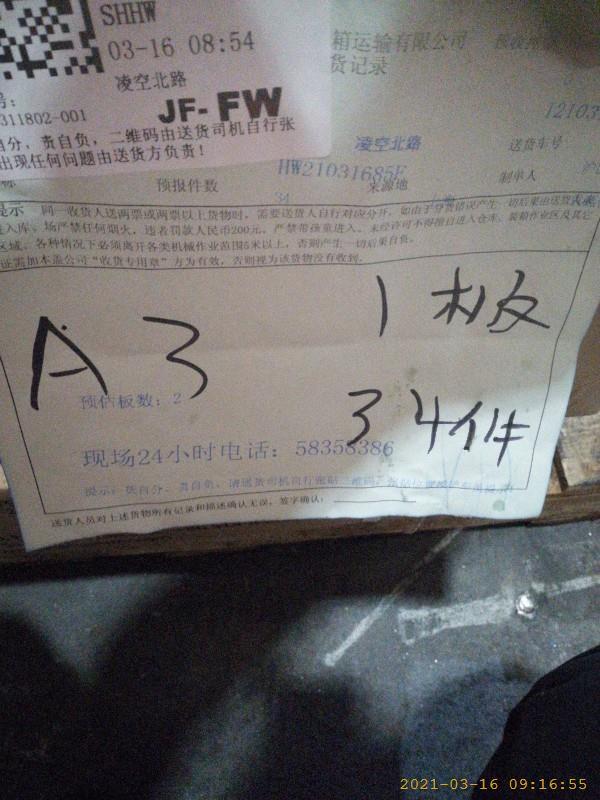 SHHW
03-16 08:54
凌空北路
号:
311802-001
JF-FW
自分，责自负，二维码由送货司机自行张
出现任何问题由送货方负责！
箱运输有限公司
货记录
凌空北路
送货车号
HW21031685F
预报件数
来源地
制单人
34
提示 同一收货人送两票或两票以上货物时，需要送货人自行对应分开，如由于分货错误产生一切后果由送货人
入库、场严禁任何烟火，违者罚款人民币200元。严禁带孩童进入。未经许可不得擅自进入仓库、装箱作业区及其它
区域。各种情况下必须离开各类机械作业范围5米以上，否则产生一切后果自负。
证需加本盖公司“收货专用章”方为有效，否则视为该货物没有收到。
A3
1板
预估板数: 2
34件
现场24小时电话: 58358386
送货人员对上述货物所有记录和描述确认无误，签字确认:
2021-03-16 09:16:55